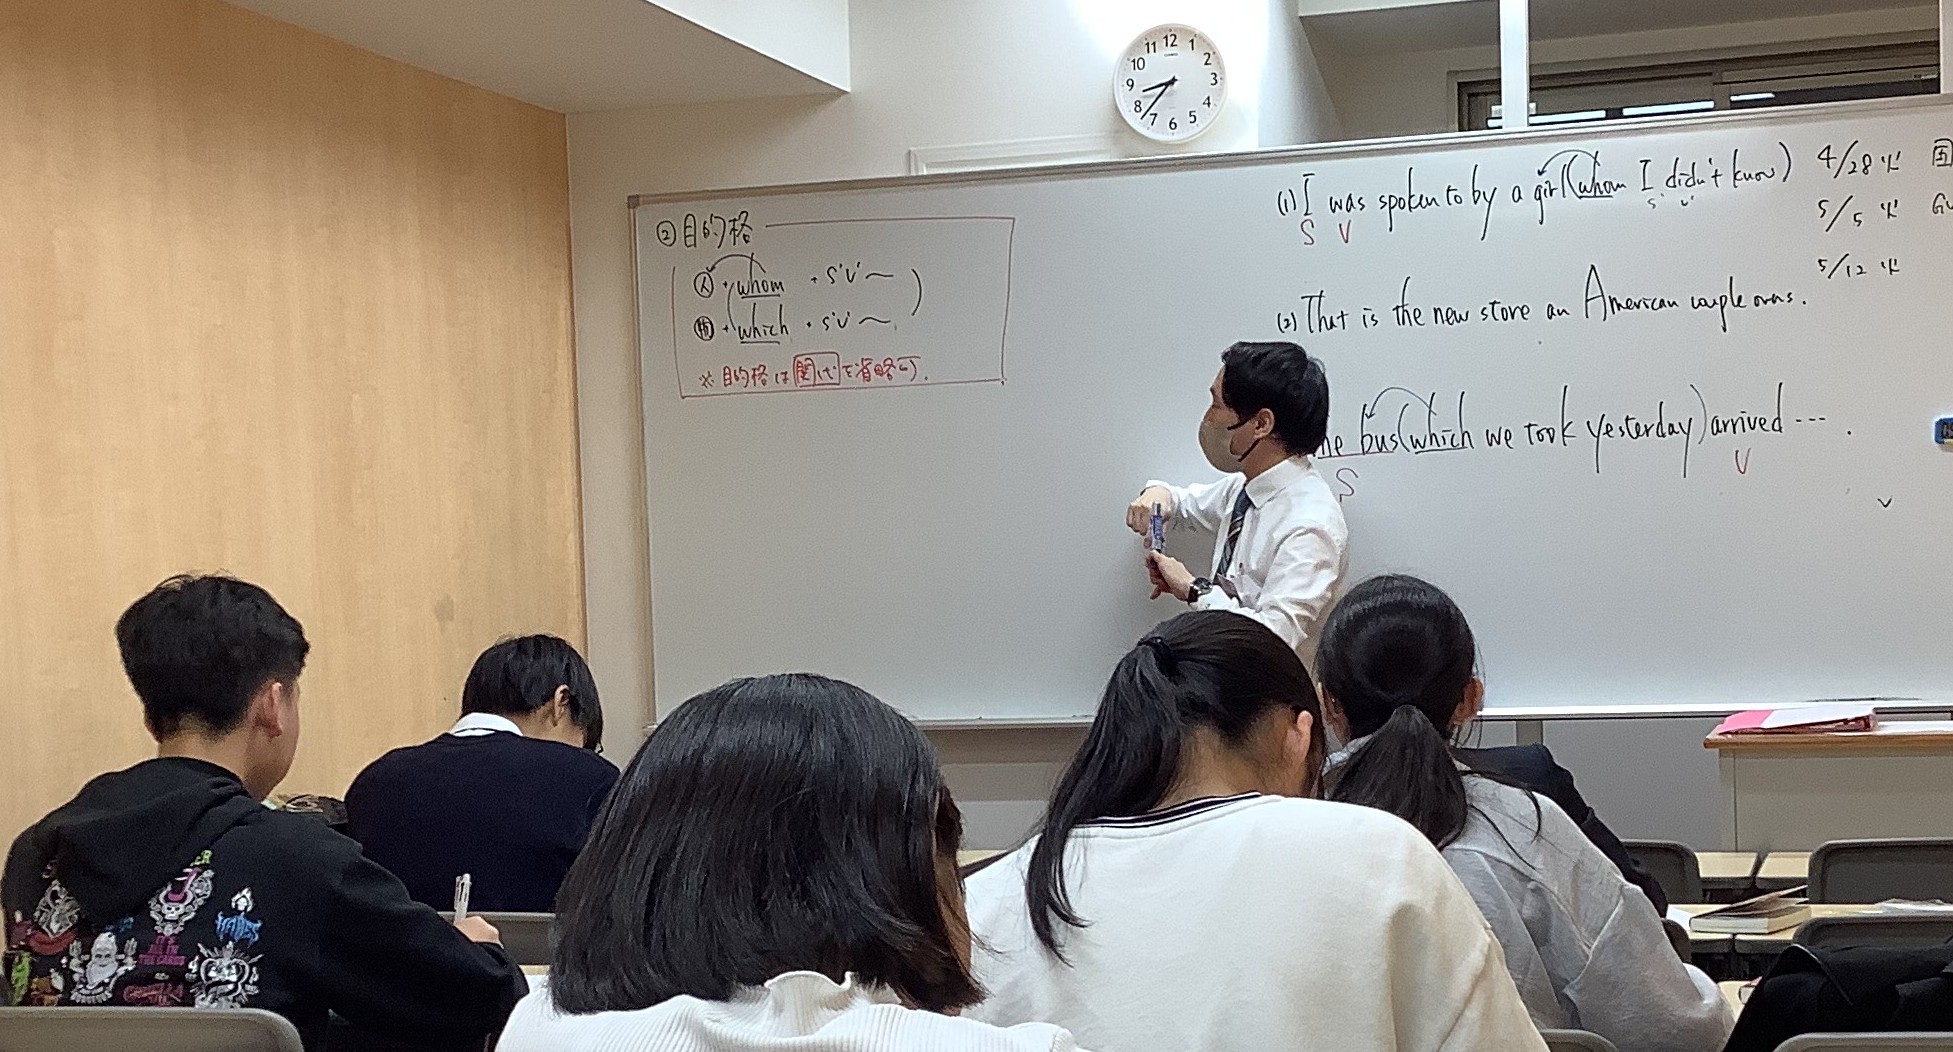 11 12 1
10 2
9 3
8 4
7 6 5
② 目的格
人 + whom + S'V' ～
物 + which + S'V' ～
※ 目的格は 関代 を省略可.
(1) I was spoken to by a girl (whom I didn't know)
S V S' V'
(2) That is the new store an American couple owns.
he bus (which we took yesterday) arrived ... .
S V
4/28 火 国
5/5 火
5/12 火
IT'S
ALL IN
THE CARDS